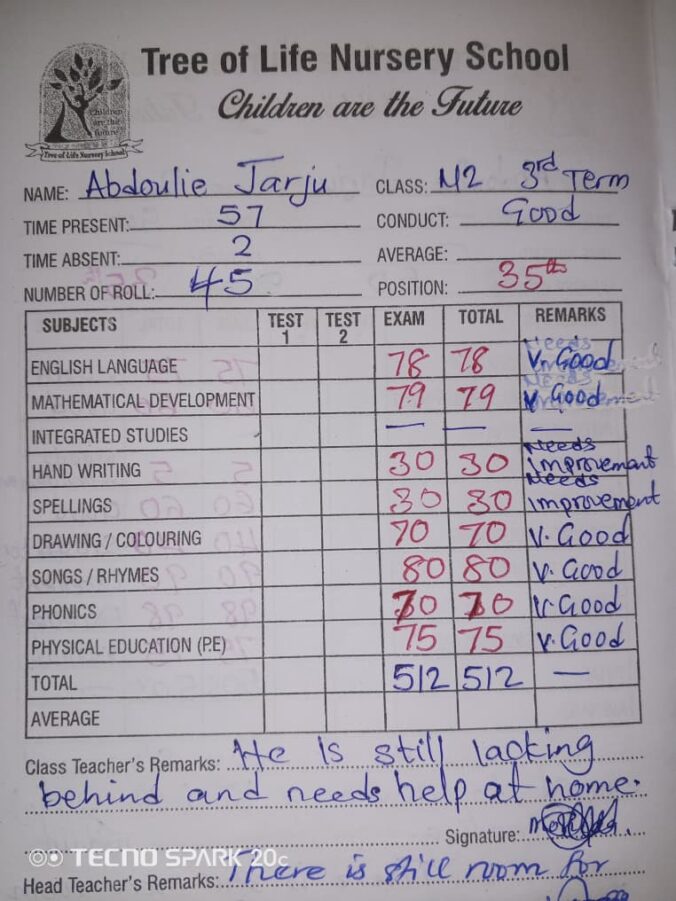 Tree of Life Nursery School
Children are the Future
Children
are the
Future
Tree of Life Nursery School
NAME: Abdoulie Jarju CLASS: N2 3rd Term
TIME PRESENT: 57 CONDUCT: Good
TIME ABSENT: 2 AVERAGE:
NUMBER OF ROLL: 45 POSITION: 35th
SUBJECTS TEST 1 TEST 2 EXAM TOTAL REMARKS
ENGLISH LANGUAGE 78 78 V. Good
MATHEMATICAL DEVELOPMENT 79 79 V. Good
INTEGRATED STUDIES — — —
HAND WRITING 30 30 Needs improvement
SPELLINGS 30 30 Needs improvement
DRAWING / COLOURING 70 70 V. Good
SONGS / RHYMES 80 80 V. Good
PHONICS 70 70 V. Good
PHYSICAL EDUCATION (P.E) 75 75 V. Good
TOTAL 512 512 —
AVERAGE
Class Teacher's Remarks: He is still lacking
behind and needs help at home.
Signature:
TECNO SPARK 20C
Head Teacher's Remarks: There is still room for